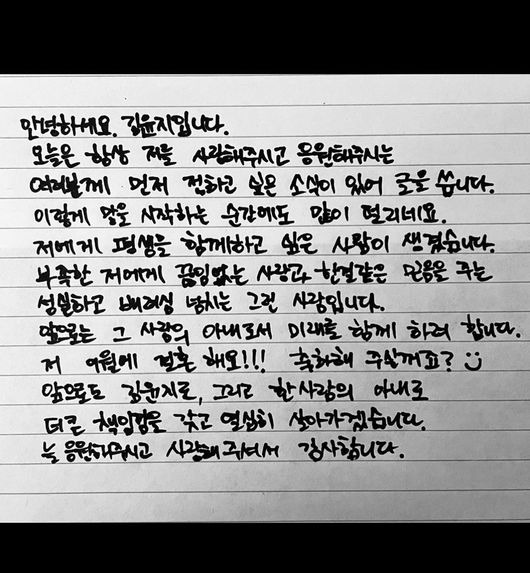 안녕하세요. 김윤지입니다.
오늘은 항상 저를 사랑해주시고 응원해주시는
여러분께 먼저 전하고 싶은 소식이 있어 글을 씁니다.
이렇게 말을 시작하는 순간에도 많이 떨리네요.
저에게 평생을 함께하고 싶은 사람이 생겼습니다.
부족한 저에게 끊임없는 사랑과, 한결같은 믿음을 주는
성실하고 배려심 넘치는 그런 사람입니다.
앞으로는 그 사람의 아내로서 미래를 함께 하려 합니다.
저 9월에 결혼 해요!!! 축하해 주실꺼죠? :)
앞으로도 김윤지로, 그리고 한 사람의 아내로
더큰 책임감을 갖고 열심히 살아가겠습니다.
늘 응원해주시고 사랑해 주셔서 감사합니다.